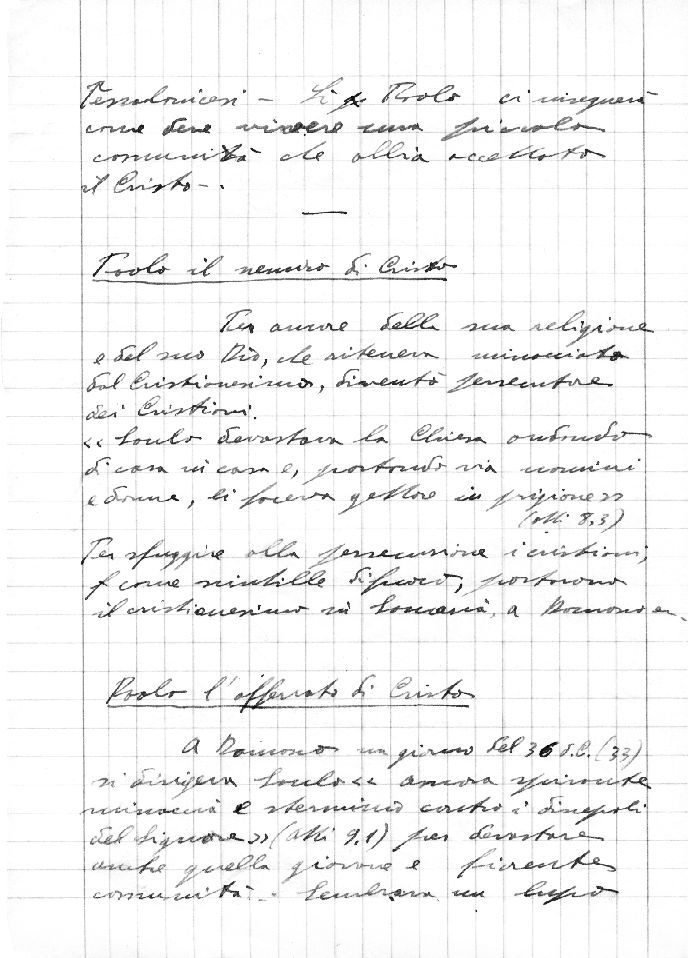 Tessalonicesi - Lì Paolo ci insegnerà
come deve vivere una piccola
comunità che abbia accettato
il Cristo -.
Paolo il nemico di Cristo
Per amore della sua religione
e del suo Dio, che riteneva minacciato
dal Cristianesimo, diventò persecutore
dei Cristiani.
<< Saulo devastava la Chiesa andando
di casa in casa e, portando via uomini
e donne, li faceva gettare in prigione >>
(Atti 8,3)
Per sfuggire alla persecuzione i cristiani,
come scintille di fuoco, portarono
il cristianesimo in Samaria, a Damasco ec.
Paolo l'afferrato di Cristo
A Damasco un giorno del 36 d.C. (33)
si dirigeva Saulo << ancora spirante
minaccia e sterminio contro i discepoli
del Signore >> (Atti 9,1) per devastare
anche quella giovane e fiorente
comunità - Sembrava un lupo